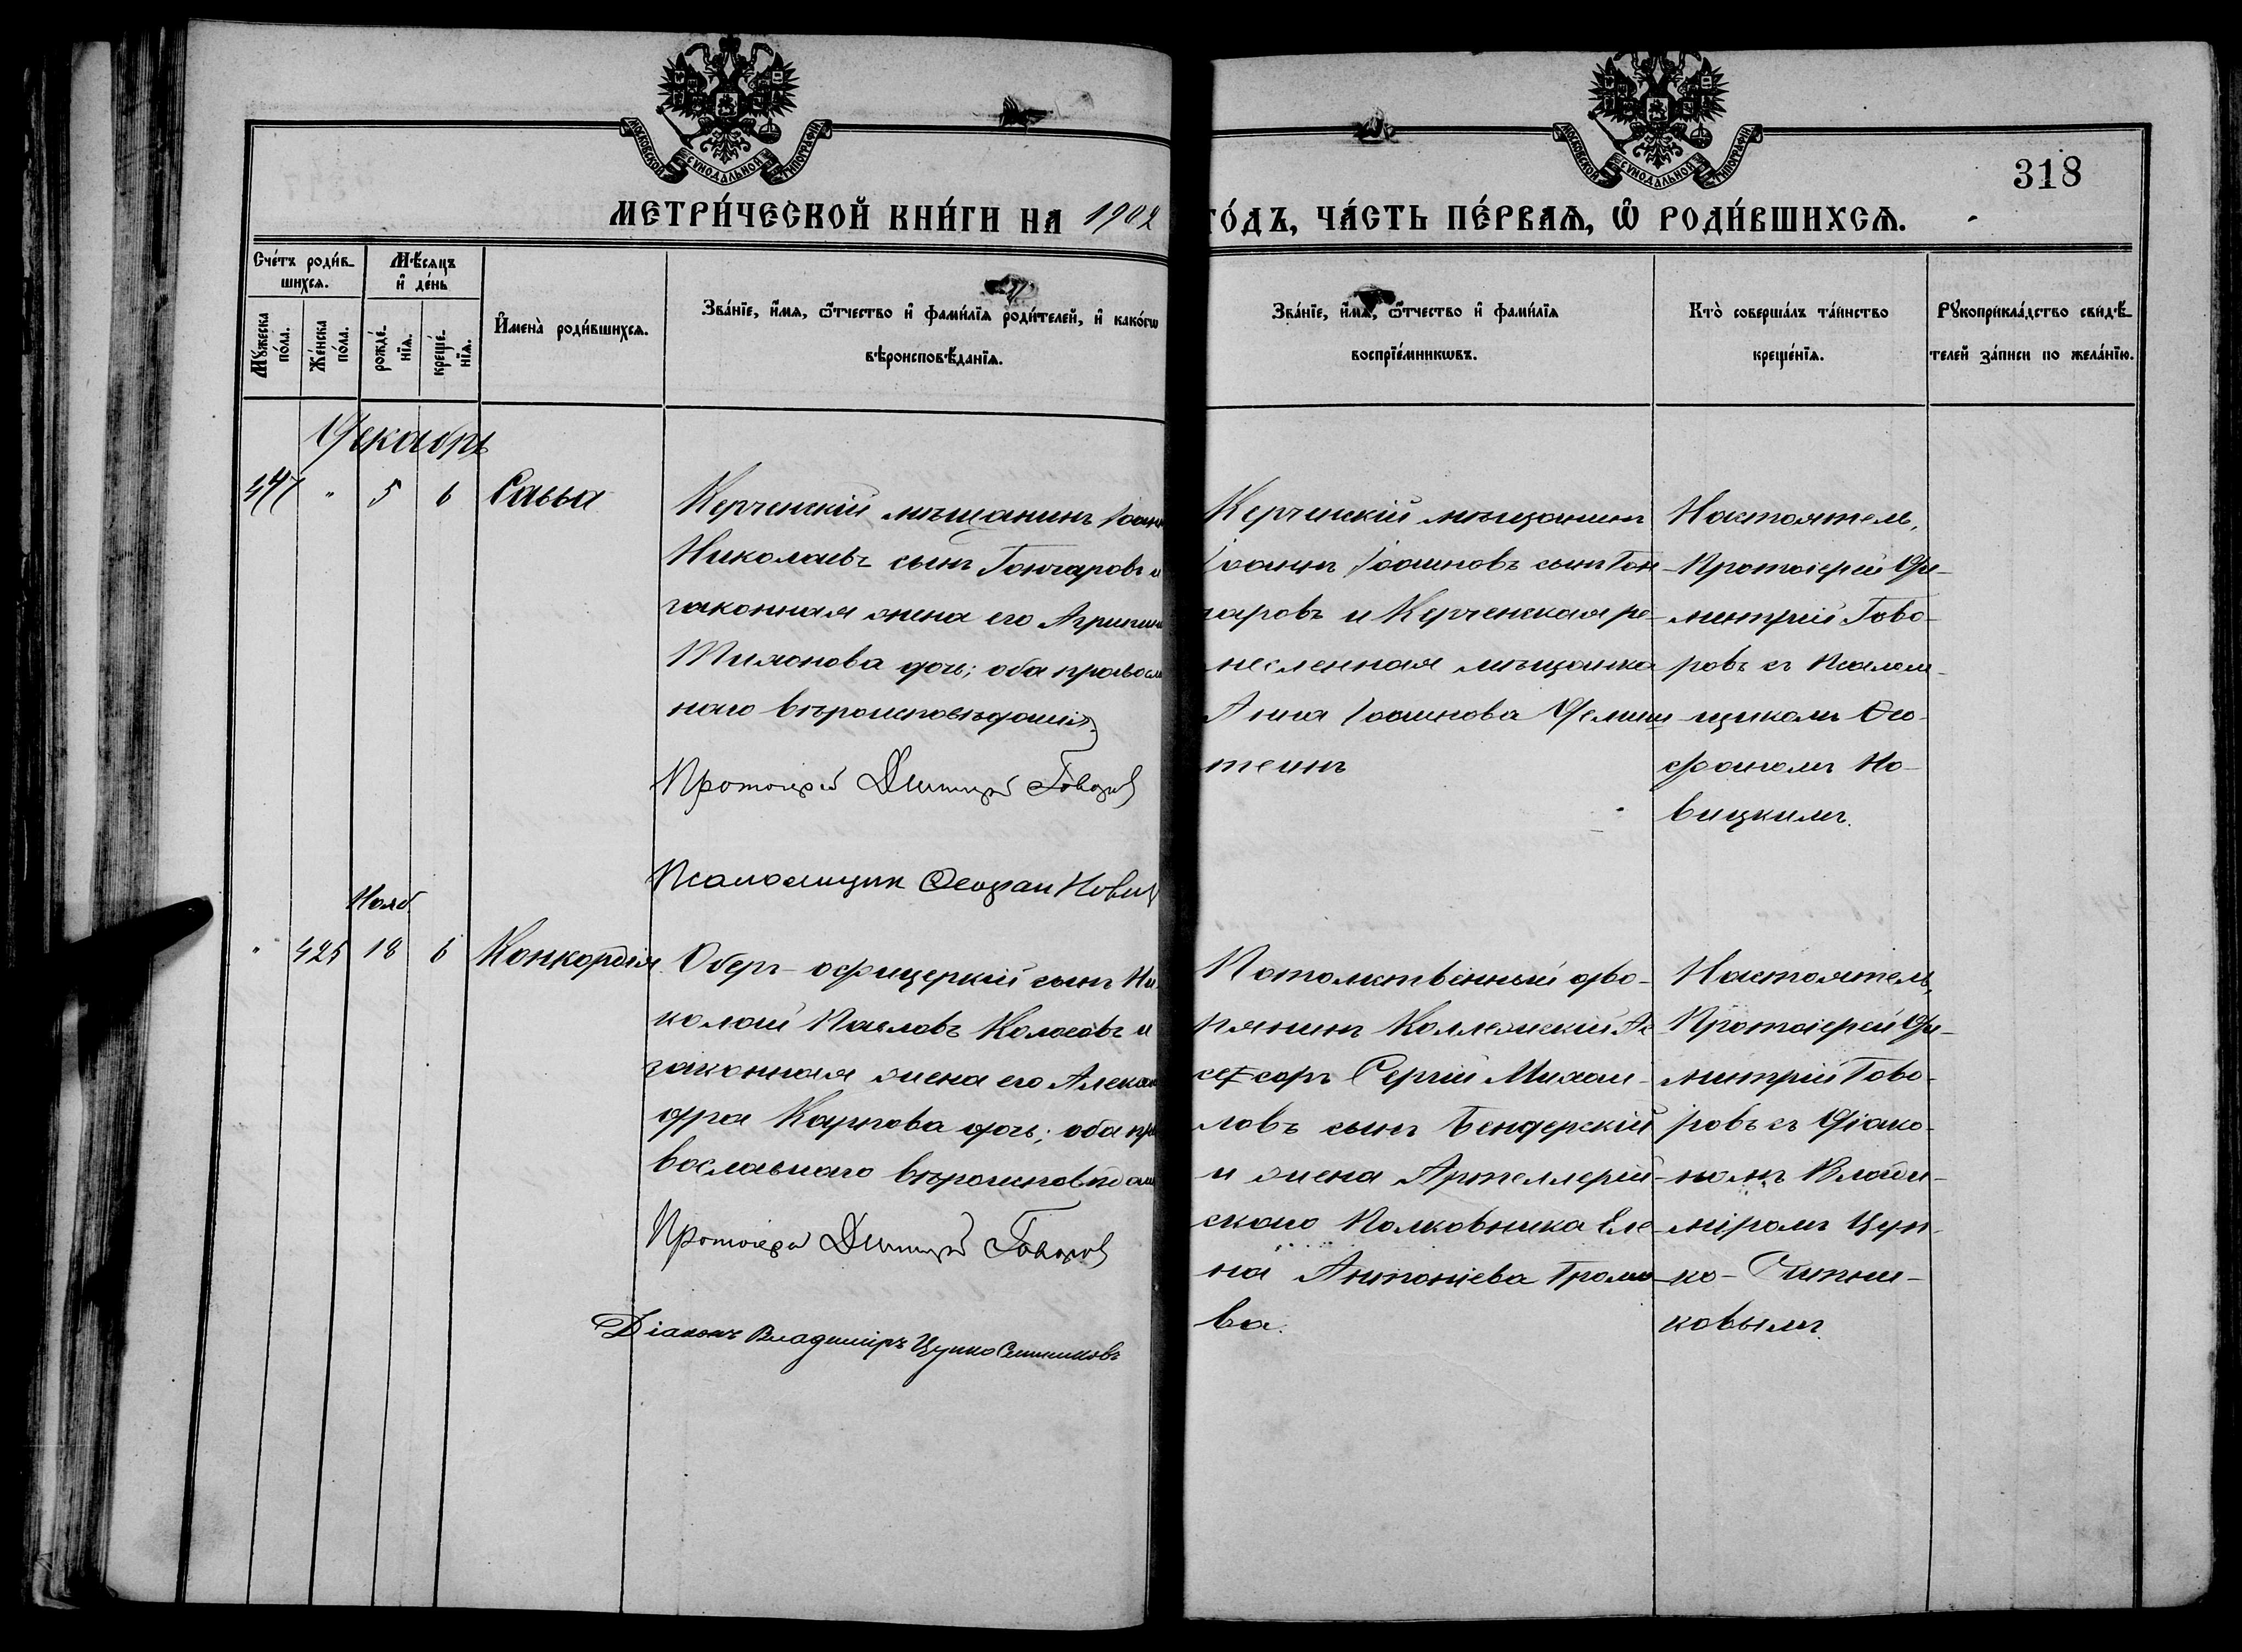 МОСКОВСКОЙ СѴНОДАЛЬНОЙ ТИПОГРАФІИ
МОСКОВСКОЙ СѴНОДАЛЬНОЙ ТИПОГРАФІИ
318
МЕТРИ́ЧЕСКОЙ КНИ́ГИ НА 1902 ГО́ДЪ, ЧА́СТЬ ПЕ́РВАѦ, Ѡ҆ РОДИ́ВШИХСѦ.
Сче́тъ роди́в-
шихсѧ.
Мꙋ́жеска
по́ла.
Же́нска
по́ла.
Мѣ́сѧцъ
и҆ де́нь
рожде́-
нїѧ.
креще́-
нїѧ.
И҆мена̀ роди́вшихсѧ.
Зва́нїе, и҆́мѧ, ѻ҆́тчество и҆ фами́лїѧ роди́телей, и҆ како́гѡ
вѣроисповѣ́данїѧ.
Зва́нїе, и҆́мѧ, ѻ҆́тчество и҆ фами́лїѧ
воспрїе́мникѡвъ.
Кто̀ соверша́лъ та́инство
креще́нїѧ.
Рꙋкоприкла́дство свидѣ́-
телей за́писи по жела́нїю.
Декабрь
447 " 5 6 Савва
Керченскій мѣщанинъ Іоанн
Николаевъ сынъ Гончаровъ и
законная жена его Агрипин
Тихонова дочь; оба правосла
наго вѣроисповѣданія
Протоіерей Димитрій Говоров
Псаломщик Ѳеофан Новиц
Керченскій мѣщанинъ
Іоаннъ Іоанновъ сынъ Гон-
чаровъ и Керченская ре-
месленная мѣщанка
Анна Іоаннова
теинъ
Настоятель,
Протоіерей Ди-
митрій Гово-
ровъ съ Псалом-
щикомъ Ѳео-
фаномъ Но-
вицкимъ.
Нояб
" 425 18 6 Конкордія
Оберъ-офицерскій сынъ Ни-
колай Павловъ Колосовъ и
законная жена его Алексан
дра Карпова дочь; оба пра
вославнаго вѣроисповѣдані
Протоіерей Димитрій Говоров
Діаконъ Владиміръ Цупко Ситниковъ
Потомственный дво-
рянинъ Коллежскій Ас
сессоръ Сергій Михаи-
ловъ сынъ Бендерскій
и жена Артеллерій-
скаго Полковника Еле-
на Антоніева Громо-
ва.
Настоятель,
Протоіерей Ди-
митрій Гово-
ровъ съ Діако-
номъ Влади-
міромъ Цуп-
ко-Ситни-
ковымъ.